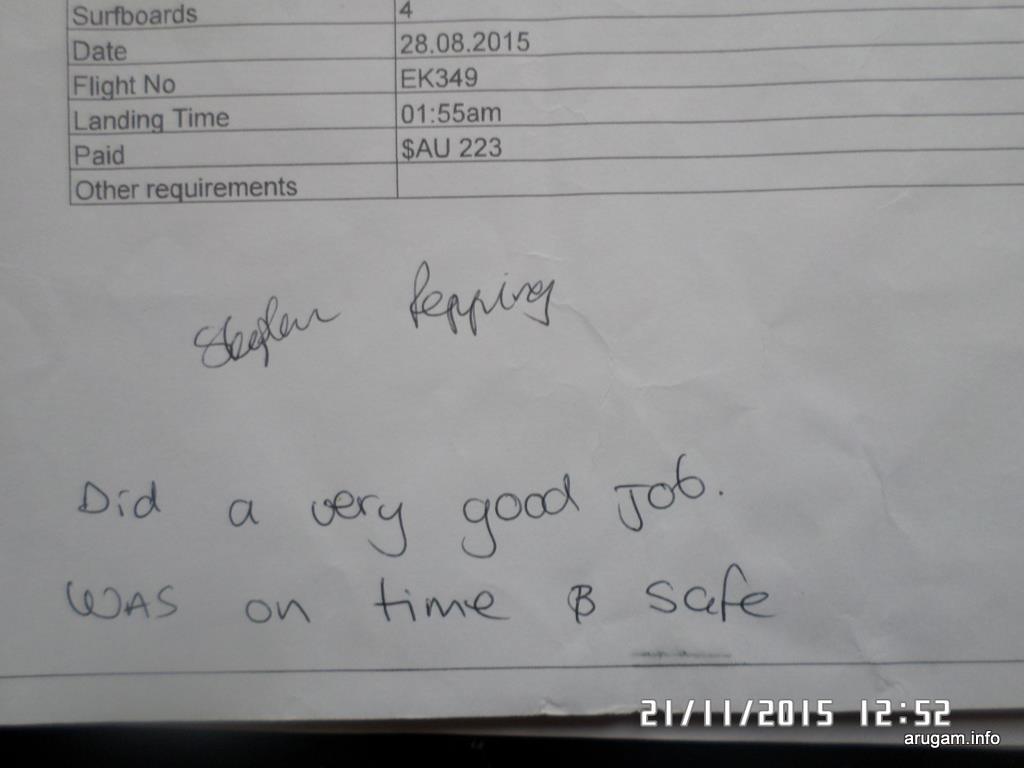 Surfboards 4
Date 28.08.2015
Flight No EK349
Landing Time 01:55am
Paid $AU 223
Other requirements
Stephen Pepping
Did a very good Job.
WAS on time & safe
21/11/2015 12:52
arugam.info